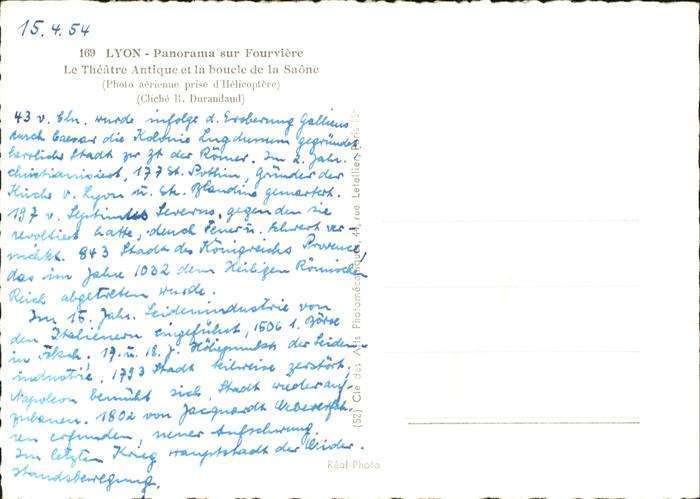 15.4.54
169 LYON - Panorama sur Fourvière
Le Théâtre Antique et la boucle de la Saône
(Photo aérienne prise d'Hélicoptère)
(Cliché R. Durandaud)
43 v. Chr. wurde infolge d. Eroberung Galliens
durch Caesar die Kolonie Lugdunum gegründet
herrliche Stadt zr Zt der Römer. Im 2. Jahr.
christianisiert, 177 St. Pothin, Gründer der
Kirche v. Lyon u. Ste. Blandine gemartert.
197 v. Septimus Severus, gegen den sie
revoltiert hatte, durch Feuer u. Schwert ver-
nichtet. 843 Stadt des Königreichs Provence,
das im Jahre 1032 dem Heiligen Römischen
Reich abgetreten wurde.
Im 15. Jahr. Seidenindustrie von
den Italienern eingeführt, 1506 1. Börse
in 17. u. 18. J. Höhepunkt der Seiden-
industrie, 1793 Stadt teilweise zerstört.
Napoleon bemüht sich, Stadt wieder auf-
zubauen. 1802 von Jacquardt
ren erfunden, neuer Aufschwung.
Im letzten Krieg Hauptstadt der Wider-
standsbewegung.
(52) Cie des Arts Photomécaniques, 44, rue Letellier, Paris-15e
Réal-Photo